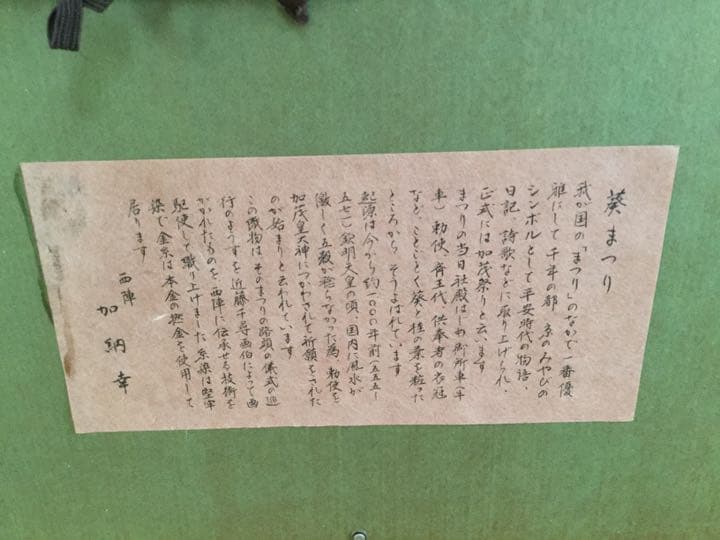 葵まつり
我が国の「まつり」のなかで一番優
雅にして千年の都、京のみやびの
シンボルとして平安時代の物語・
日記、詩歌などに取り上げられ、
正式には加茂祭りと云います
まつりの当日社殿はじめ御所車(牛
車)勅使、斉王代、供奉者の衣冠
など、ことごとく葵と桂の葉を粧った
ところから、そうよばれています
起源は今から約一〇〇〇年前(五五五~
五七一)欽明天皇の頃、国内に風水が
激しく五穀が稔らなかった為、勅使を
加茂皇大神につかわされて祈願をされた
のが始まりと云われています
この織物は、そのまつりの路頭の儀式の巡
行のようすを近藤千尋画伯によって画
かかれたものを、西陣に伝承せる技術を
駆使して織り上げました 糸染は堅牢
染で金糸は本金の撚金を使用して
居ります
西陣
加納幸